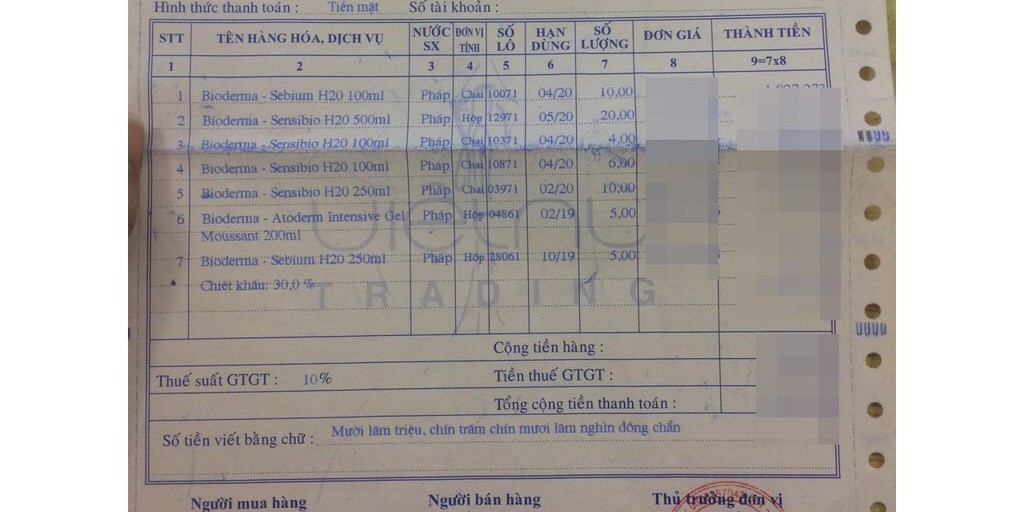 Hình thức thanh toán : Tiền mặt Số tài khoản :
STT TÊN HÀNG HÓA, DỊCH VỤ NƯỚC SX ĐƠN VỊ TÍNH SỐ LÔ HẠN DÙNG SỐ LƯỢNG ĐƠN GIÁ THÀNH TIỀN
1 2 3 4 5 6 7 8 9=7x8
1 Bioderma - Sebium H20 100ml Pháp Chai 10071 04/20 10,00
2 Bioderma - Sensibio H20 500ml Pháp Hộp 12971 05/20 20,00
3 Bioderma - Sensibio H20 100ml Pháp Chai 10371 04/20 4,00
4 Bioderma - Sensibio H20 100ml Pháp Chai 10871 04/20 6,00
5 Bioderma - Sensibio H20 250ml Pháp Chai 03971 02/20 10,00
6 Bioderma - Atoderm Intensive Gel Pháp Hộp 04861 02/19 5,00
Moussant 200ml
7 Bioderma - Sebium H20 250ml Pháp Hộp 28061 10/19 5,00
* Chiết khấu: 30,0 %
TRADING
Cộng tiền hàng :
Thuế suất GTGT : 10% Tiền thuế GTGT :
Tổng cộng tiền thanh toán :
Số tiền viết bằng chữ : Mười lăm triệu, chín trăm chín mươi lăm nghìn đồng chẵn
Người mua hàng Người bán hàng Thủ trưởng đơn vị